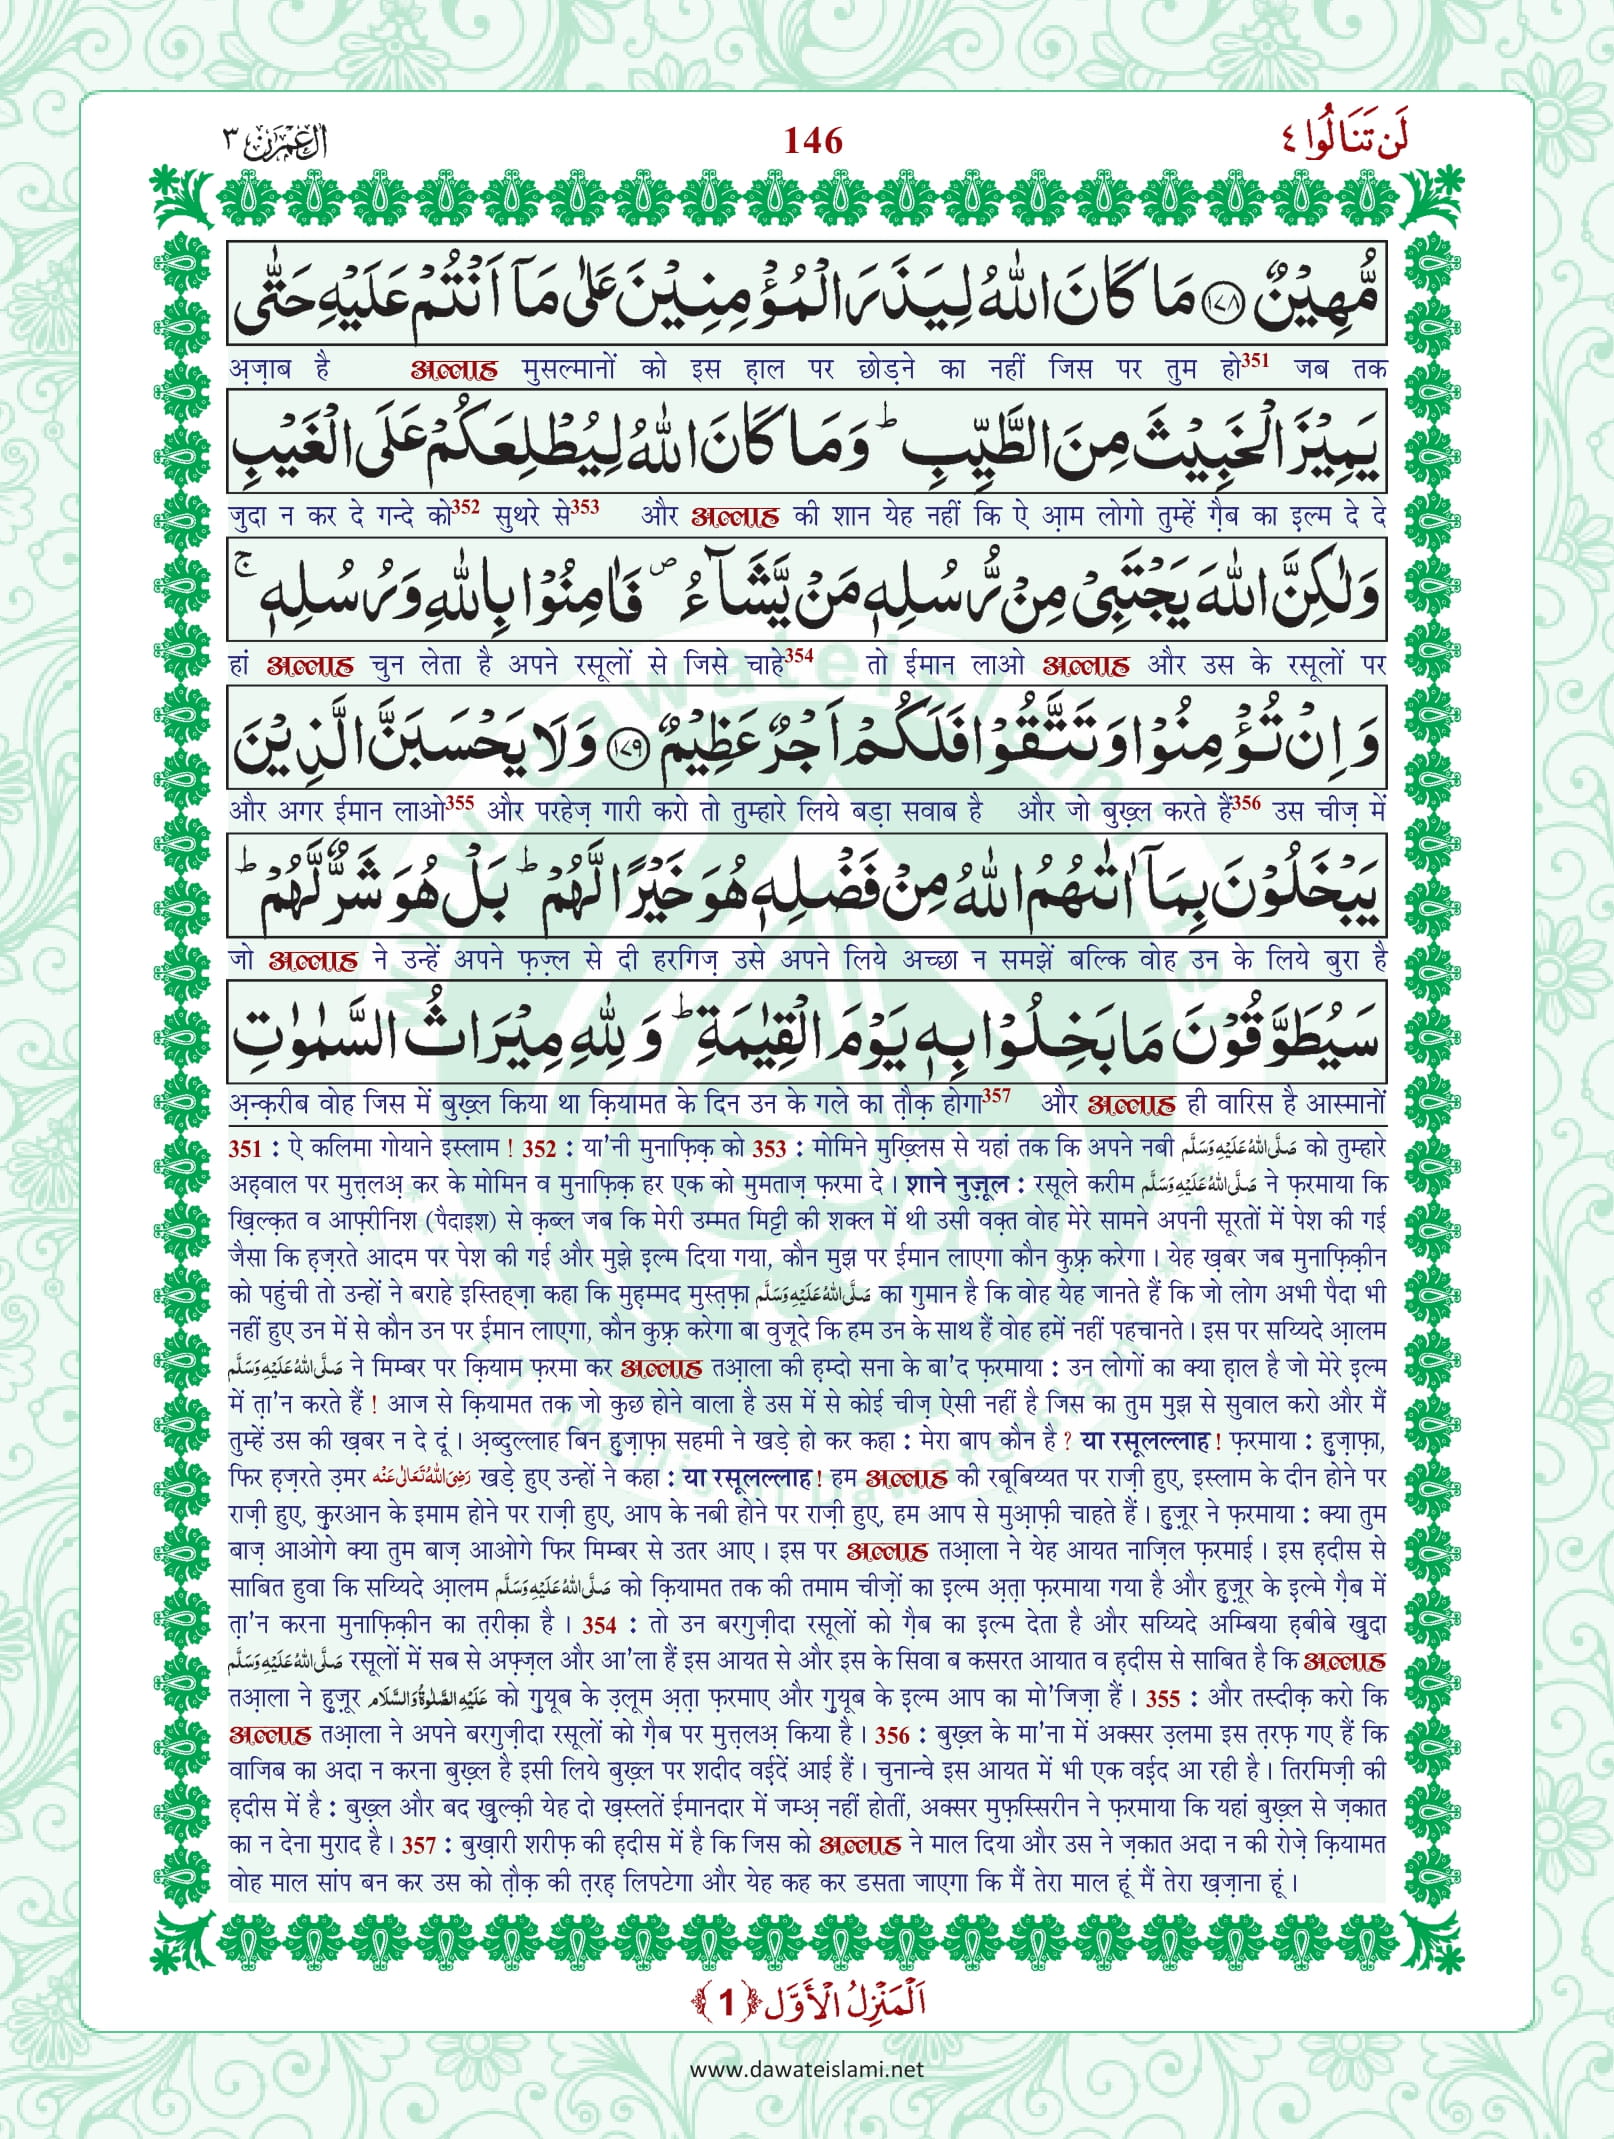 اٰل عمرٰن ٣
146
لَن تَنَالُوا ٤
مُّهِیْنٌ ﴿۱۷۸﴾ مَا كَانَ اللّٰهُ لِیَذَرَ الْمُؤْمِنِیْنَ عَلٰى مَاۤ اَنْتُمْ عَلَیْهِ حَتّٰى
अ़ज़ाब है अल्लाह मुसल्मानों को इस ह़ाल पर छोड़ने का नहीं जिस पर तुम हो351 जब तक
یَمِیْزَ الْخَبِیْثَ مِنَ الطَّیِّبِ ؕ وَ مَا كَانَ اللّٰهُ لِیُطْلِعَكُمْ عَلَى الْغَیْبِ
जुदा न कर दे गन्दे को352 सुथरे से353 और अल्लाह की शान येह नहीं कि ऐ आ़म लोगो तुम्हें ग़ैब का इल्म दे दे
وَ لٰكِنَّ اللّٰهَ یَجْتَبِیْ مِنْ رُّسُلِهٖ مَنْ یَّشَآءُ ۪ فَاٰمِنُوْا بِاللّٰهِ وَ رُسُلِهٖ ۚ
हां अल्लाह चुन लेता है अपने रसूलों से जिसे चाहे354 तो ईमान लाओ अल्लाह और उस के रसूलों पर
وَ اِنْ تُؤْمِنُوْا وَ تَتَّقُوْا فَلَكُمْ اَجْرٌ عَظِیْمٌ ﴿۱۷۹﴾ وَ لَا یَحْسَبَنَّ الَّذِیْنَ
और अगर ईमान लाओ355 और परहेज़ गारी करो तो तुम्हारे लिये बड़ा सवाब है और जो बुख़्ल करते हैं356 उस चीज़ में
یَبْخَلُوْنَ بِمَاۤ اٰتٰىهُمُ اللّٰهُ مِنْ فَضْلِهٖ هُوَ خَیْرًا لَّهُمْ ؕ بَلْ هُوَ شَرٌّ لَّهُمْ ؕ
जो अल्लाह ने उन्हें अपने फ़ज़्ल से दी हरगिज़ उसे अपने लिये अच्छा न समझें बल्कि वोह उन के लिये बुरा है
سَیُطَوَّقُوْنَ مَا بَخِلُوْا بِهٖ یَوْمَ الْقِیٰمَةِ ؕ وَ لِلّٰهِ مِیْرَاثُ السَّمٰوٰتِ
अ़न्क़रीब वोह जिस में बुख़्ल किया था क़ियामत के दिन उन के गले का त़ौक़ होगा357 और अल्लाह ही वारिस है आस्मानों
351 : ऐ कलिमा गोयाने इस्लाम ! 352 : या'नी मुनाफ़िक़ को 353 : मोमिने मुख़्लिस से यहां तक कि अपने नबी صَلَّى اللّٰهُ عَلَيْهِ وَسَلَّم को तुम्हारे
अह़वाल पर मुत़्त़लअ़ कर के मोमिन व मुनाफ़िक़ हर एक को मुमताज़ फ़रमा दे। शाने नुज़ूल : रसूले करीम صَلَّى اللّٰهُ عَلَيْهِ وَسَلَّم ने फ़रमाया कि
ख़िल्क़त व आफ़्रीनिश (पैदाइश) से क़ब्ल जब कि मेरी उम्मत मिट्टी की शक्ल में थी उसी वक़्त वोह मेरे सामने अपनी सूरतों में पेश की गई
जैसा कि ह़ज़रते आदम पर पेश की गई और मुझे इल्म दिया गया, कौन मुझ पर ईमान लाएगा कौन कुफ़्र करेगा। येह ख़बर जब मुनाफ़िक़ीन
को पहुंची तो उन्हों ने बराहे इस्तिह्ज़ा कहा कि मुह़म्मद मुस्त़फ़ा صَلَّى اللّٰهُ عَلَيْهِ وَسَلَّم का गुमान है कि वोह येह जानते हैं कि जो लोग अभी पैदा भी
नहीं हुए उन में से कौन उन पर ईमान लाएगा, कौन कुफ़्र करेगा बा वुजूदे कि हम उन के साथ हैं वोह हमें नहीं पहचानते। इस पर सय्यिदे आ़लम
صَلَّى اللّٰهُ عَلَيْهِ وَسَلَّم ने मिम्बर पर क़ियाम फ़रमा कर अल्लाह तआ़ला की ह़म्दो सना के बा'द फ़रमाया : उन लोगों का क्या ह़ाल है जो मेरे इल्म
में त़ा'न करते हैं ! आज से क़ियामत तक जो कुछ होने वाला है उस में से कोई चीज़ ऐसी नहीं है जिस का तुम मुझ से सुवाल करो और मैं
तुम्हें उस की ख़बर न दे दूं। अ़ब्दुल्लाह बिन हुज़ाफ़ा सहमी ने खड़े हो कर कहा : मेरा बाप कौन है ? या रसूलल्लाह ! फ़रमाया : हुज़ाफ़ा,
फिर ह़ज़रते उ़मर رَضِىَ اللّٰهُ تَعَالٰى عَنْه खड़े हुए उन्हों ने कहा : या रसूलल्लाह ! हम अल्लाह की रबूबिय्यत पर राज़ी हुए, इस्लाम के दीन होने पर
राज़ी हुए, कुरआन के इमाम होने पर राज़ी हुए, आप के नबी होने पर राज़ी हुए, हम आप से मुआ़फ़ी चाहते हैं। हुज़ूर ने फ़रमाया : क्या तुम
बाज़ आओगे क्या तुम बाज़ आओगे फिर मिम्बर से उतर आए। इस पर अल्लाह तआ़ला ने येह आयत नाज़िल फ़रमाई। इस ह़दीस से
साबित हुवा कि सय्यिदे आ़लम صَلَّى اللّٰهُ عَلَيْهِ وَسَلَّم को क़ियामत तक की तमाम चीज़ों का इल्म अ़त़ा फ़रमाया गया है और हुज़ूर के इल्मे ग़ैब में
त़ा'न करना मुनाफ़िक़ीन का त़रीक़ा है। 354 : तो उन बरगुज़ीदा रसूलों को ग़ैब का इल्म देता है और सय्यिदे अम्बिया ह़बीबे खुदा
صَلَّى اللّٰهُ عَلَيْهِ وَسَلَّم रसूलों में सब से अफ़्ज़ल और आ'ला हैं इस आयत से और इस के सिवा ब कसरत आयात व ह़दीस से साबित है कि अल्लाह
तआ़ला ने हुज़ूर عَلَيْهِ الصَّلٰوةُ وَالسَّلَام को गुयूब के उ़लूम अ़त़ा फ़रमाए और गुयूब के इल्म आप का मो'जिज़ा हैं। 355 : और तस्दीक़ करो कि
अल्लाह तआ़ला ने अपने बरगुज़ीदा रसूलों को ग़ैब पर मुत़्त़लअ़ किया है। 356 : बुख़्ल के मा'ना में अक्सर उ़लमा इस त़रफ़ गए हैं कि
वाजिब का अदा न करना बुख़्ल है इसी लिये बुख़्ल पर शदीद वई़दें आई हैं। चुनान्चे इस आयत में भी एक वई़द आ रही है। तिरमिज़ी की
ह़दीस में है : बुख़्ल और बद खुल्क़ी येह दो ख़स्लतें ईमानदार में जम्अ़ नहीं होतीं, अक्सर मुफ़स्सिरीन ने फ़रमाया कि यहां बुख़्ल से ज़कात
का न देना मुराद है। 357 : बुख़ारी शरीफ़ की ह़दीस में है कि जिस को अल्लाह ने माल दिया और उस ने ज़कात अदा न की रोज़े क़ियामत
वोह माल सांप बन कर उस को त़ौक़ की त़रह़ लिपटेगा और येह कह कर डसता जाएगा कि मैं तेरा माल हूं मैं तेरा ख़ज़ाना हूं।
اَلْمَنْزِلُ الْاَوَّل ﴿1﴾
www.dawateislami.net